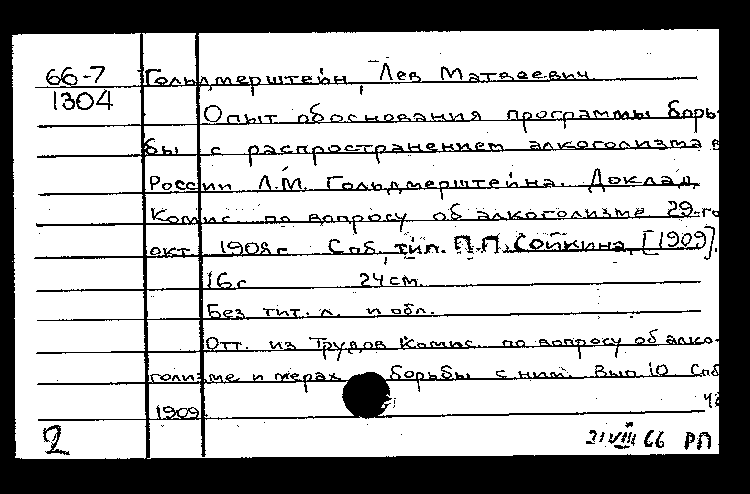 66-7 Гольдмерштейн, Лев Матвеевич
1304
Опыт обоснования программы борь-
бы с распространением алкоголизма в
России Л.М. Гольдмерштейна. Доклад
Комис. по вопросу об алкоголизме 29-го
окт. 1908 г. Спб, тип. П.П. Сойкина, [1909].
16 с 24 см.
Без тит. л. и обл.
Отт. из Трудов Комис. по вопросу об алко-
голизме и мерах борьбы с ним. Вып 10 Спб
1909
2 21 VIII 66 РП